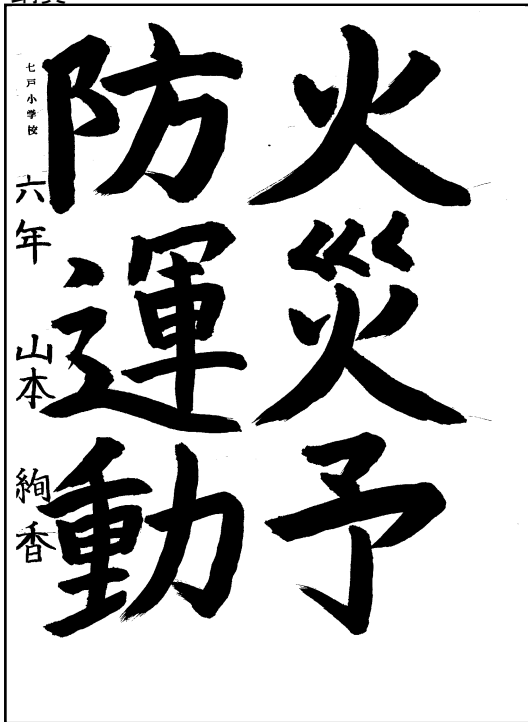 火災予
防運動
七戸小学校
六年 山本 絢香